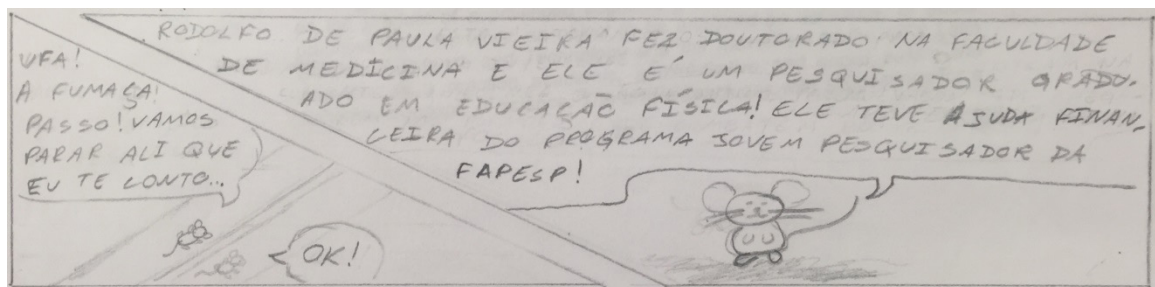 UFA!
A FUMAÇA!
PASSO! VAMOS
PARAR ALI QUE
EU TE CONTO...
OK!
RODOLFO DE PAULA VIEIRA FEZ DOUTORADO NA FACULDADE
DE MEDICINA E ELE É UM PESQUISADOR GRADU-
ADO EM EDUCAÇÃO FÍSICA! ELE TEVE AJUDA FINAN-
CEIRA DO PROGRAMA JOVEM PESQUISADOR DA
FAPESP!